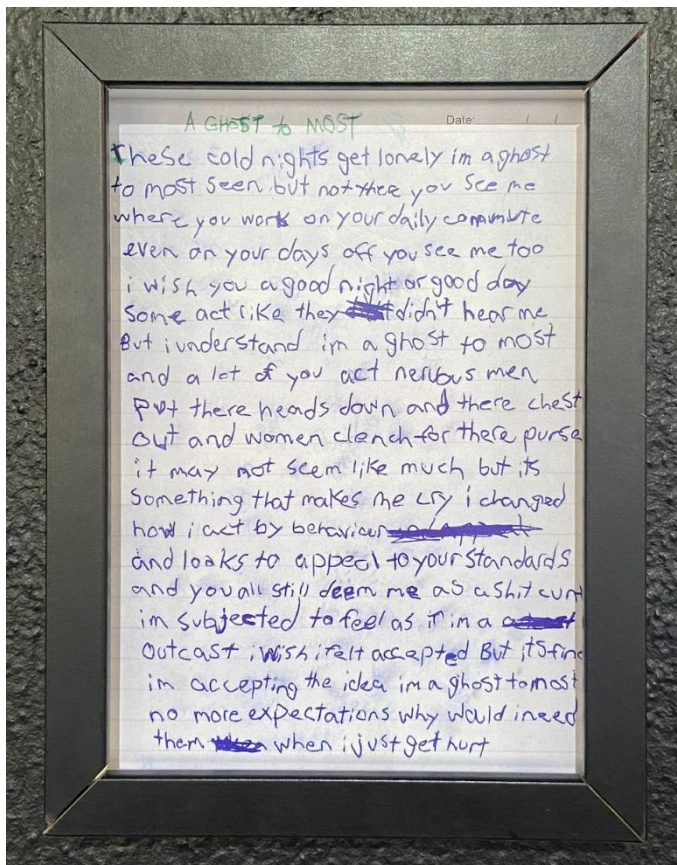 A GHOST to MOST
Date: / /
These cold nights get lonely im a ghost
to most seen but not thee you see me
where you work on your daily commute
even on your days off you see me too
i wish you a good night or good day
Some act like they didn't hear me
But i understand im a ghost to most
and a lot of you act nervous men
Put there heads down and there chest
out and women clench for there purse
it may not seem like much but its
Something that makes me cry i changed
how i act by behaviour
and looks to appeal to your standards
and you all still deem me as a shit cunt
im subjected to feel as if im a
outcast i wish i felt accepted But its fine
im accepting the idea im a ghost to most
no more expectations why would i need
them when i just get hurt